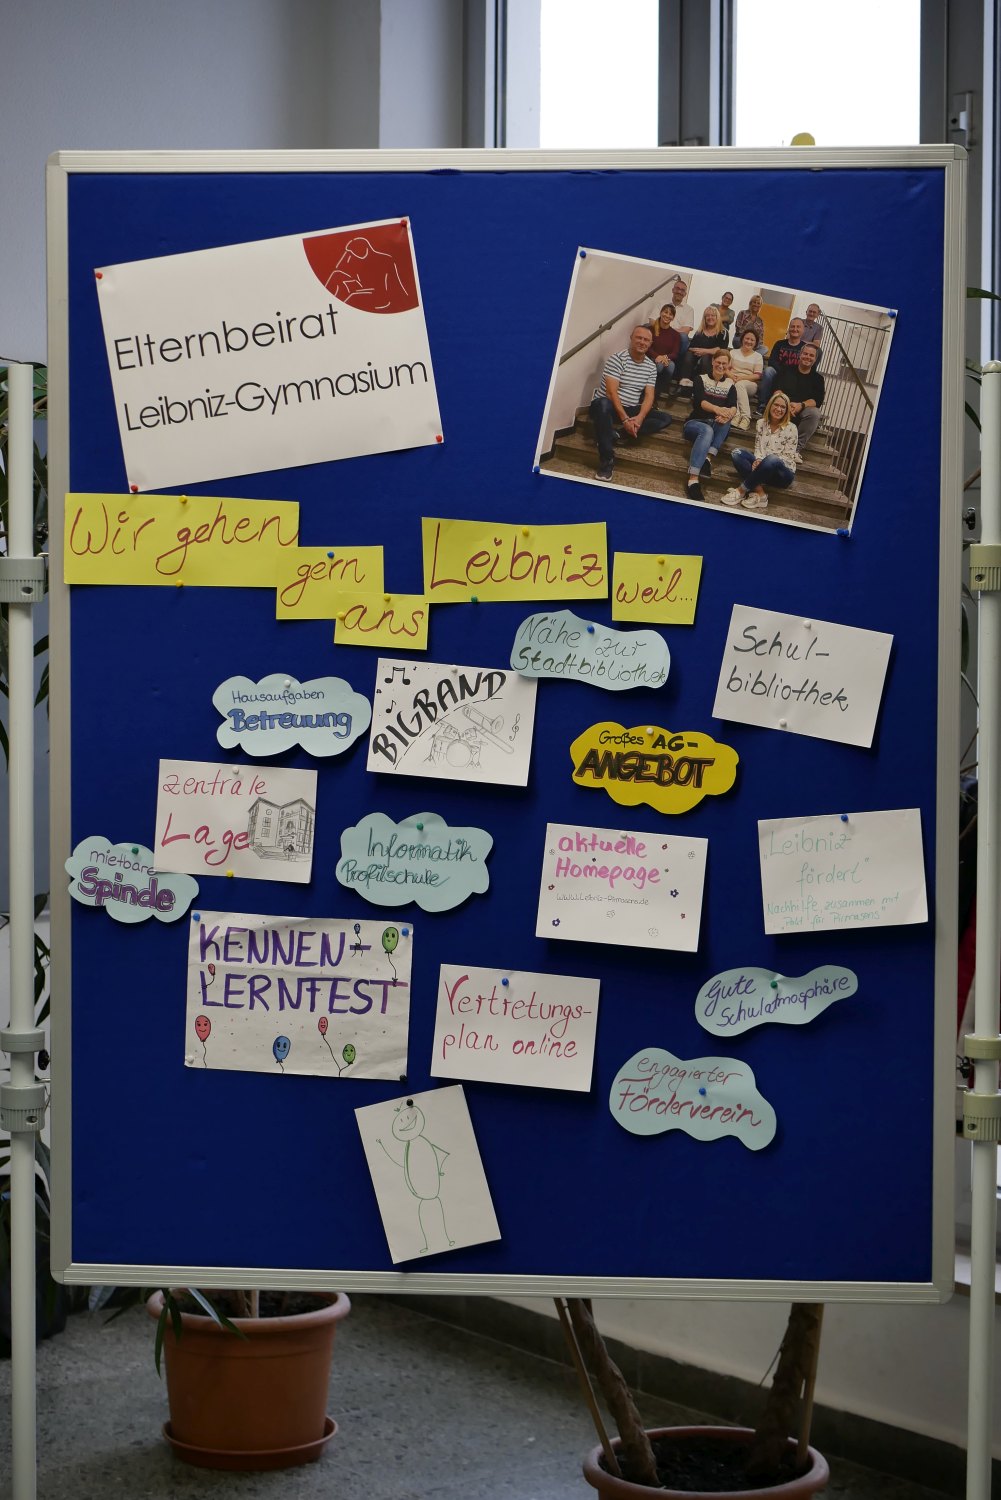 Elternbeirat
Leibniz-Gymnasium
Wir gehen
gern
ans
Leibniz
weil...
Nähe zur
Stadtbibliothek
Schul-
bibliothek
Hausaufgaben
Betreuung
BIGBAND
Großes AG-
ANGEBOT
zentrale
Lage
mietbare
Spinde
Informatik
Profilschule
aktuelle
Homepage
www.Leibniz-Pirmasens.de
"Leibniz
fördert"
Nachhilfe zusammen mit
"Pakt für Pirmasens"
KENNEN-
LERNFEST
Vertretungs-
plan online
Gute
Schulatmosphäre
engagierter
Förderverein